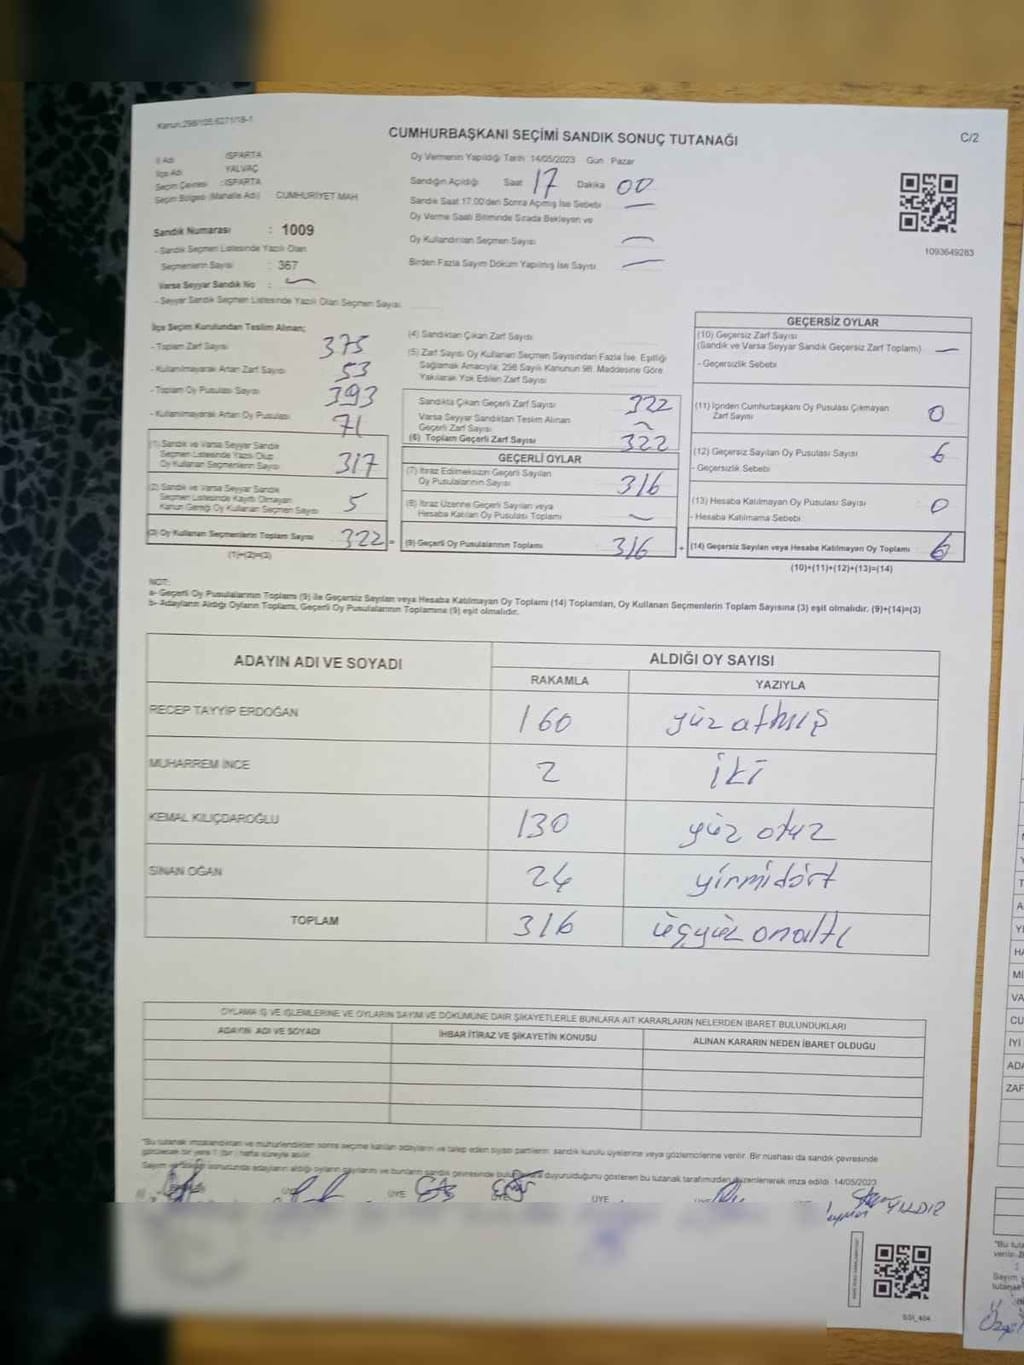 Kanun:298/105,6271/18-1
CUMHURBAŞKANI SEÇİMİ SANDIK SONUÇ TUTANAĞI
C/2
İl Adı ISPARTA
İlçe Adı YALVAÇ
Seçim Çevresi : ISPARTA
Seçim Bölgesi (Mahalle Adı) CUMHURİYET MAH
Sandık Numarası : 1009
- Sandık Seçmen Listesinde Yazılı Olan
Seçmenlerin Sayısı : 367
Varsa Seyyar Sandık No :
- Seyyar Sandık Seçmen Listesinde Yazılı Olan Seçmen Sayısı
Oy Vermenin Yapıldığı Tarih 14/05/2023 Gün Pazar
Sandığın Açıldığı Saat 17 Dakika 00
Sandık Saat 17:00'den Sonra Açılmış İse Sebebi
Oy Verme Saati Bitiminde Sırada Bekleyen ve
Oy Kullandırılan Seçmen Sayısı
Birden Fazla Sayım Döküm Yapılmış İse Sayısı
1093649283
İlçe Seçim Kurulundan Teslim Alınan;
- Toplam Zarf Sayısı 375
- Kullanılmayarak Artan Zarf Sayısı 53
- Toplam Oy Pusulası Sayısı 393
- Kullanılmayarak Artan Oy Pusulası 71
(1) Sandık ve Varsa Seyyar Sandık
Seçmen Listesinde Yazılı Olup
Oy Kullanan Seçmenlerin Sayısı 317
(2) Sandık ve Varsa Seyyar Sandık
Seçmen Listesinde Kayıtlı Olmayan
Kanun Gereği Oy Kullanan Seçmen Sayısı 5
(3) Oy Kullanan Seçmenlerin Toplam Sayısı 322 =
(1)+(2)=(3)
(4) Sandıktan Çıkan Zarf Sayısı
(5) Zarf Sayısı Oy Kullanan Seçmen Sayısından Fazla İse, Eşitliği
Sağlamak Amacıyla; 298 Sayılı Kanunun 98. Maddesine Göre
Yakılarak Yok Edilen Zarf Sayısı
Sandıkta Çıkan Geçerli Zarf Sayısı 322
Varsa Seyyar Sandıktan Teslim Alınan
Geçerli Zarf Sayısı
(6) Toplam Geçerli Zarf Sayısı 322
GEÇERLİ OYLAR
(7) İtiraz Edilmeksizin Geçerli Sayılan
Oy Pusulalarının Sayısı 316
(8) İtiraz Üzerine Geçerli Sayılan veya
Hesaba Katılan Oy Pusulası Toplamı
(9) Geçerli Oy Pusulalarının Toplamı 316 +
GEÇERSİZ OYLAR
(10) Geçersiz Zarf Sayısı
(Sandık ve Varsa Seyyar Sandık Geçersiz Zarf Toplamı)
- Geçersizlik Sebebi
(11) İçinden Cumhurbaşkanı Oy Pusulası Çıkmayan
Zarf Sayısı 0
(12) Geçersiz Sayılan Oy Pusulası Sayısı 6
- Geçersizlik Sebebi
(13) Hesaba Katılmayan Oy Pusulası Sayısı 0
- Hesaba Katılmama Sebebi
(14) Geçersiz Sayılan veya Hesaba Katılmayan Oy Toplamı 6
(10)+(11)+(12)+(13)=(14)
NOT:
a- Geçerli Oy Pusulalarının Toplamı (9) ile Geçersiz Sayılan veya Hesaba Katılmayan Oy Toplamı (14) Toplamları, Oy Kullanan Seçmenlerin Toplam Sayısına (3) eşit olmalıdır. (9)+(14)=(3)
b- Adayların Aldığı Oyların Toplamı, Geçerli Oy Pusulalarının Toplamına (9) eşit olmalıdır.
ADAYIN ADI VE SOYADI ALDIĞI OY SAYISI
RAKAMLA YAZIYLA
RECEP TAYYİP ERDOĞAN 160 yüz atmış
MUHARREM İNCE 2 iki
KEMAL KILIÇDAROĞLU 130 yüz otuz
SİNAN OĞAN 24 yirmidört
TOPLAM 316 üçyüz onaltı
OYLAMA İŞ VE İŞLEMLERİNE VE OYLARIN SAYIM VE DÖKÜMÜNE DAİR ŞİKAYETLERLE BUNLARA AİT KARARLARIN NELERDEN İBARET BULUNDUKLARI
ADAYIN ADI VE SOYADI İHBAR İTİRAZ VE ŞİKAYETİN KONUSU ALINAN KARARIN NEDEN İBARET OLDUĞU
"Bu tutanak imzalandıktan ve mühürlendikten sonra seçime katılan adayların ve talep eden siyasi partilerin sandık kurulu üyelerine veya gözlemcilerine verilir. Bir nüshası da sandık çevresinde
görülecek bir yere 1 (bir) hafta süreyle asılır.
Sayım ve döküm sonucunda adayların aldığı oyların sayılarını ve bunların sandık çevresinde duyurulduğunu gösteren bu tutanak tarafımızdan düzenlenerek imza edildi. 14/05/2023
ÜYE ÜYE ÜYE
YILDIZ